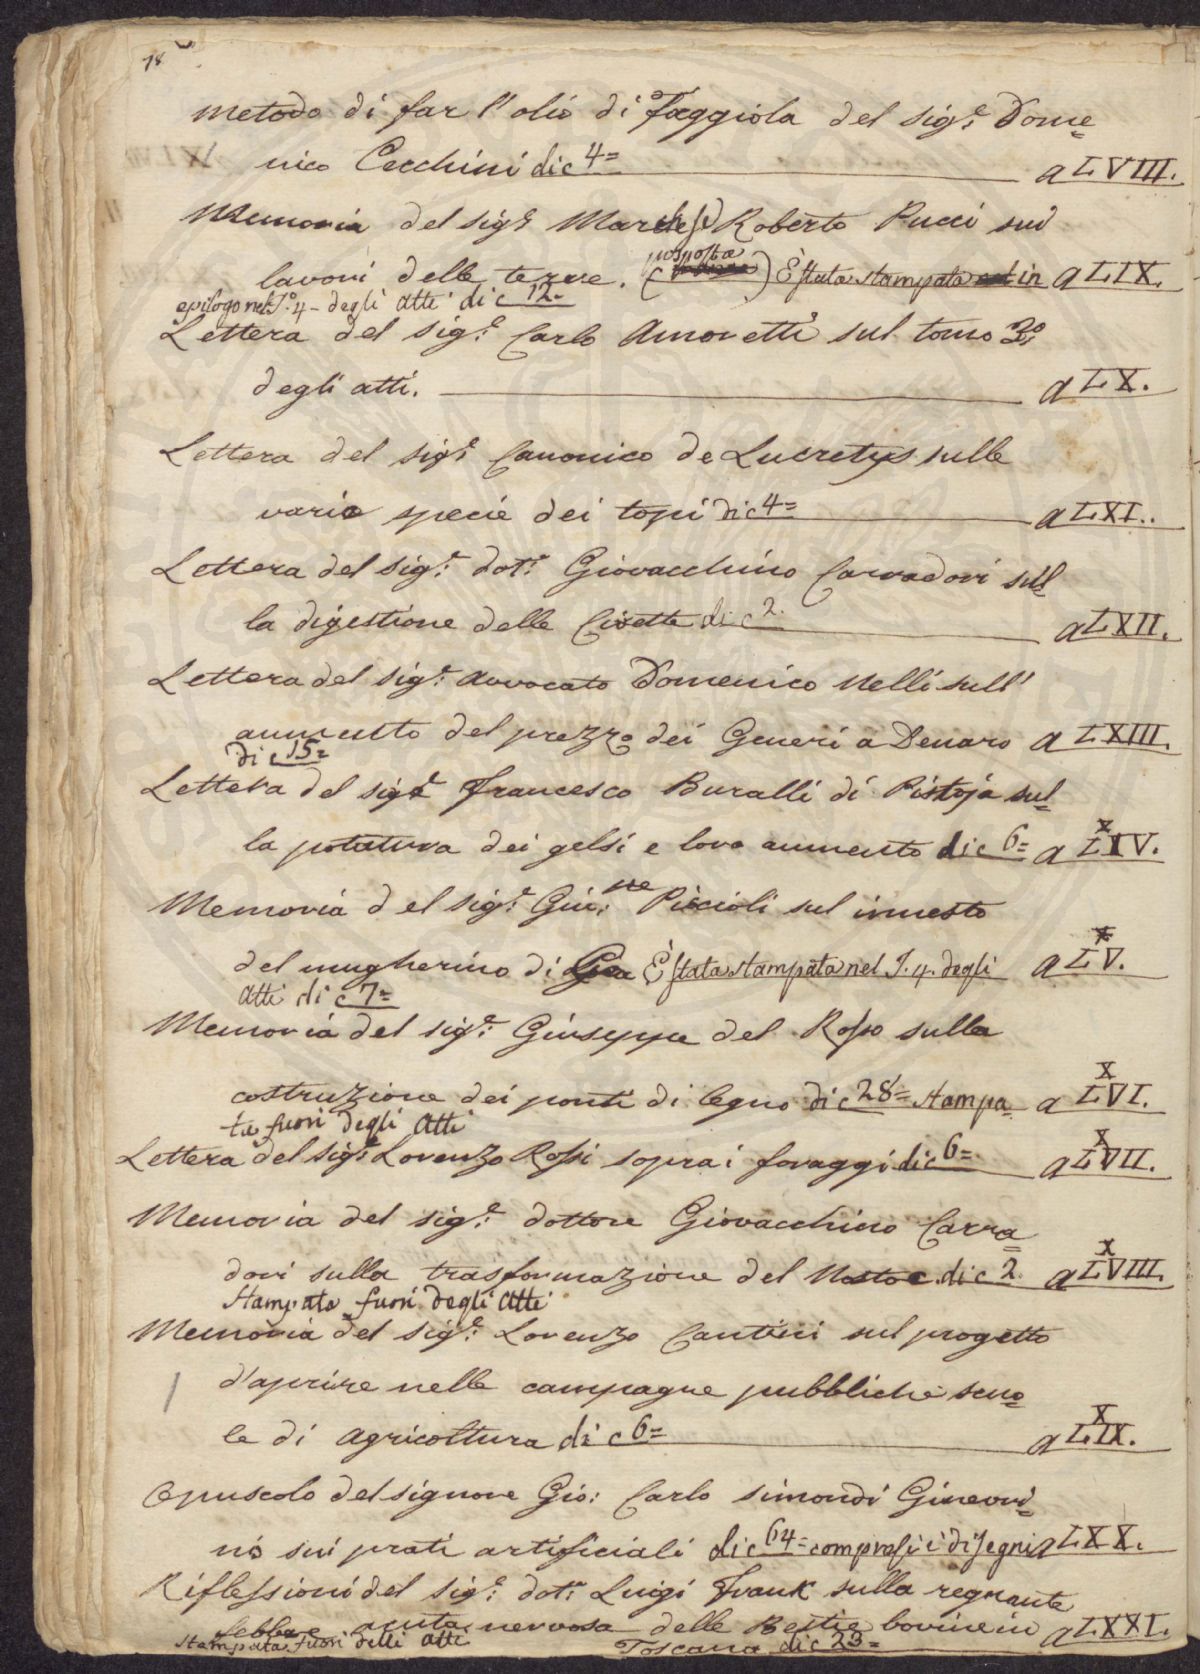 18
Metodo di far l'olio di Faggiola del sig.e Dome=
nico Cecchini di c 4= a LVIII.
Memoria del sig.e Marchese Roberto Pucci sui
lavori delle terre. ( risposta ) È stata stampata in a LIX.
epilogo nel T.o 4 - degli Atti di c 12=
Lettera del sig.e Carlo Amoretti sul tomo 3o
degli atti. a LX.
Lettera del sig.e Canonico de Lucretijs sulle
varie specie dei topi di c 4= a LXI.
Lettera del sig.e dot.e Giovacchino Carradori sul=
la digestione delle Civette di c 2. a LXII.
Lettera del sig.e Avvocato Domenico Nelli sull'
aumento del prezzo dei Generi a Denaro a LXIII.
di c 15=
Lettera del sig.e Francesco Buralli di Pistoja sul=
la potatura dei gelsi e loro aumento di c 6= a LXIV.
Memoria del sig.e Giu:ne Piccioli sul innesto
del mugherino di È stata stampata nel T. 4. degli a LXV.
Atti di c 7=
Memoria del sig.e Giuseppe del Rosso sulla
costruzione dei ponti di legno di c 28= stampa= a LXVI.
ta fuori degli Atti
Lettera del sig.e Lorenzo Rossi sopra i foraggi di c 6= a LXVII.
Memoria del sig.e dottore Giovacchino Carra=
dori sulla trasformazione del Nostoc di c 2. a LXVIII.
Stampata fuori degli Atti
Memoria del sig.e Lorenzo Cantini sul progetto
d'aprire nelle campagne pubbliche scuo=
le di agricoltura di c 6= a LXIX.
Opuscolo del signore Gio: Carlo Simondi Ginevri=
no sui prati artificiali di c 64= compresi i disegni a LXX.
Riflessioni del sig.e dot.e Luigi Frank sulla regnante
febbre acuta nervosa delle Bestie bovine in a LXXI.
stampata fuori delli Atti Toscana di c 23=